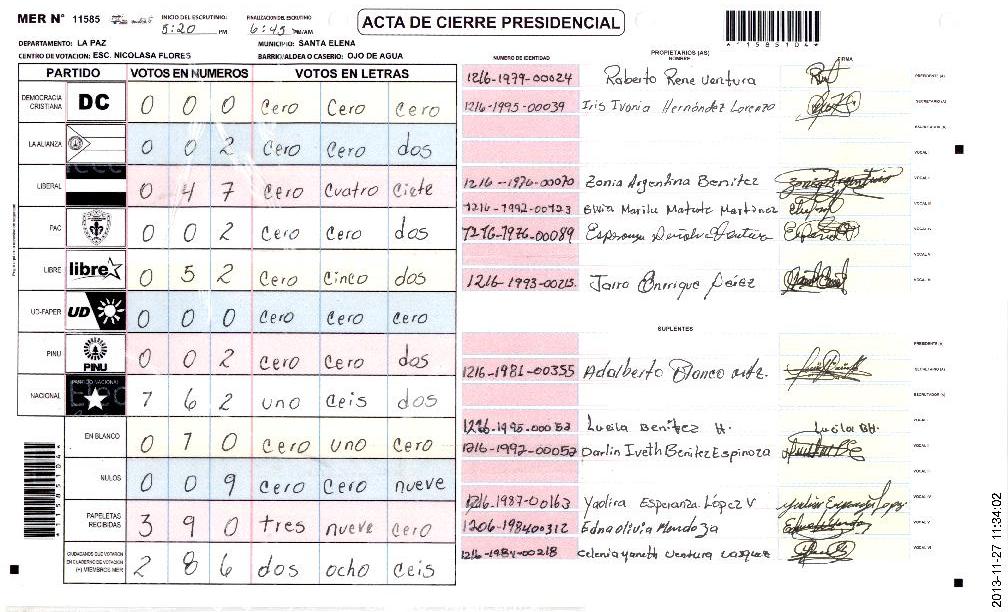 MER N° 11585
INICIO DEL ESCRUTINIO:
5:20 PM
FINALIZACION DEL ESCRUTINIO
6:45 PM/AM
ACTA DE CIERRE PRESIDENCIAL
*11585104*
DEPARTAMENTO: LA PAZ
MUNICIPIO: SANTA ELENA
CENTRO DE VOTACION: ESC. NICOLASA FLORES
BARRIO/ALDEA O CASERIO: OJO DE AGUA
PARTIDO VOTOS EN NUMEROS VOTOS EN LETRAS
DEMOCRACIA CRISTIANA DC 0 0 0 Cero Cero Cero
LA ALIANZA 0 0 2 Cero Cero dos
LIBERAL 0 4 7 Cero Cuatro Ciete
PAC 0 0 2 Cero Cero dos
LIBRE libre 0 5 2 Cero Cinco dos
UD-FAPER UD 0 0 0 Cero Cero Cero
PINU PINU 0 0 2 Cero Cero dos
NACIONAL PARTIDO NACIONAL 7 6 2 uno Ceis dos
EN BLANCO 0 1 0 Cero uno Cero
NULOS 0 0 9 Cero Cero nueve
PAPELETAS RECIBIDAS 3 9 0 tres nueve Cero
CIUDADANOS QUE VOTARON EN CUADERNO DE VOTACION (+) MIEMBROS MER 2 8 6 dos ocho Ceis
PROPIETARIOS (AS)
NUMERO DE IDENTIDAD NOMBRE FIRMA
1216-1979-00024 Roberto Rene Ventura PRESIDENTE (A)
1216-1995-00039 Iris Ivonia Hernández Lorenzo SECRETARIO (A)
ESCRUTADOR (A)
VOCAL I
1216-1976-00070 Zonia Argentina Benitez VOCAL II
1216-1992-00123 Elvia Marilu Matute Martinez VOCAL III
1216-1976-00089 Esperanza VOCAL IV
VOCAL V
1216-1993-00215. Jairo Enrrique Peréz VOCAL VI
SUPLENTES
PRESIDENTE (A)
1216-1981-00355 Adalberto Blanco SECRETARIO (A)
ESCRUTADOR (A)
Lucila Benitez H. Lucila BH. VOCAL I
1216-1992-00052 Darlin Iveth Benitez Espinoza VOCAL II
VOCAL III
1216-1987-00163 Yadira Esperanza López V VOCAL IV
1206-1984-00312 Edna olivia Mendoza VOCAL V
1216-1984-00218 Celenia yaneth Ventura Vasquez VOCAL VI
2013-11-27 11:34:02